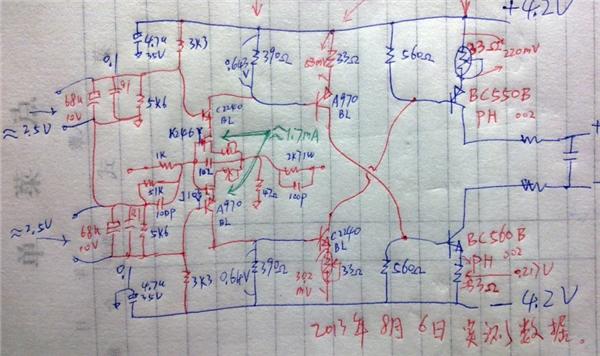 +4.2V
4.7u
35V
0.1
3K3
0.643V
390Ω
33Ω
560Ω
33Ω
220mV
68u
10V
5K6
≈2.5V
C2240
BL
A970
BL
BC550B
PH 002
K246
≈1.7mA
1K
2K7 1W
51K
100P
100P
47Ω
J103
A970
BL
C2240
BL
≈2.5V
68u
10V
5K6
BC560B
PH 002
0.1
4.7u
35V
3K3
0.64V
390Ω
302
mV
33Ω
560Ω
0.217V
33Ω
-4.2V
2013年8月6日 实测数据。